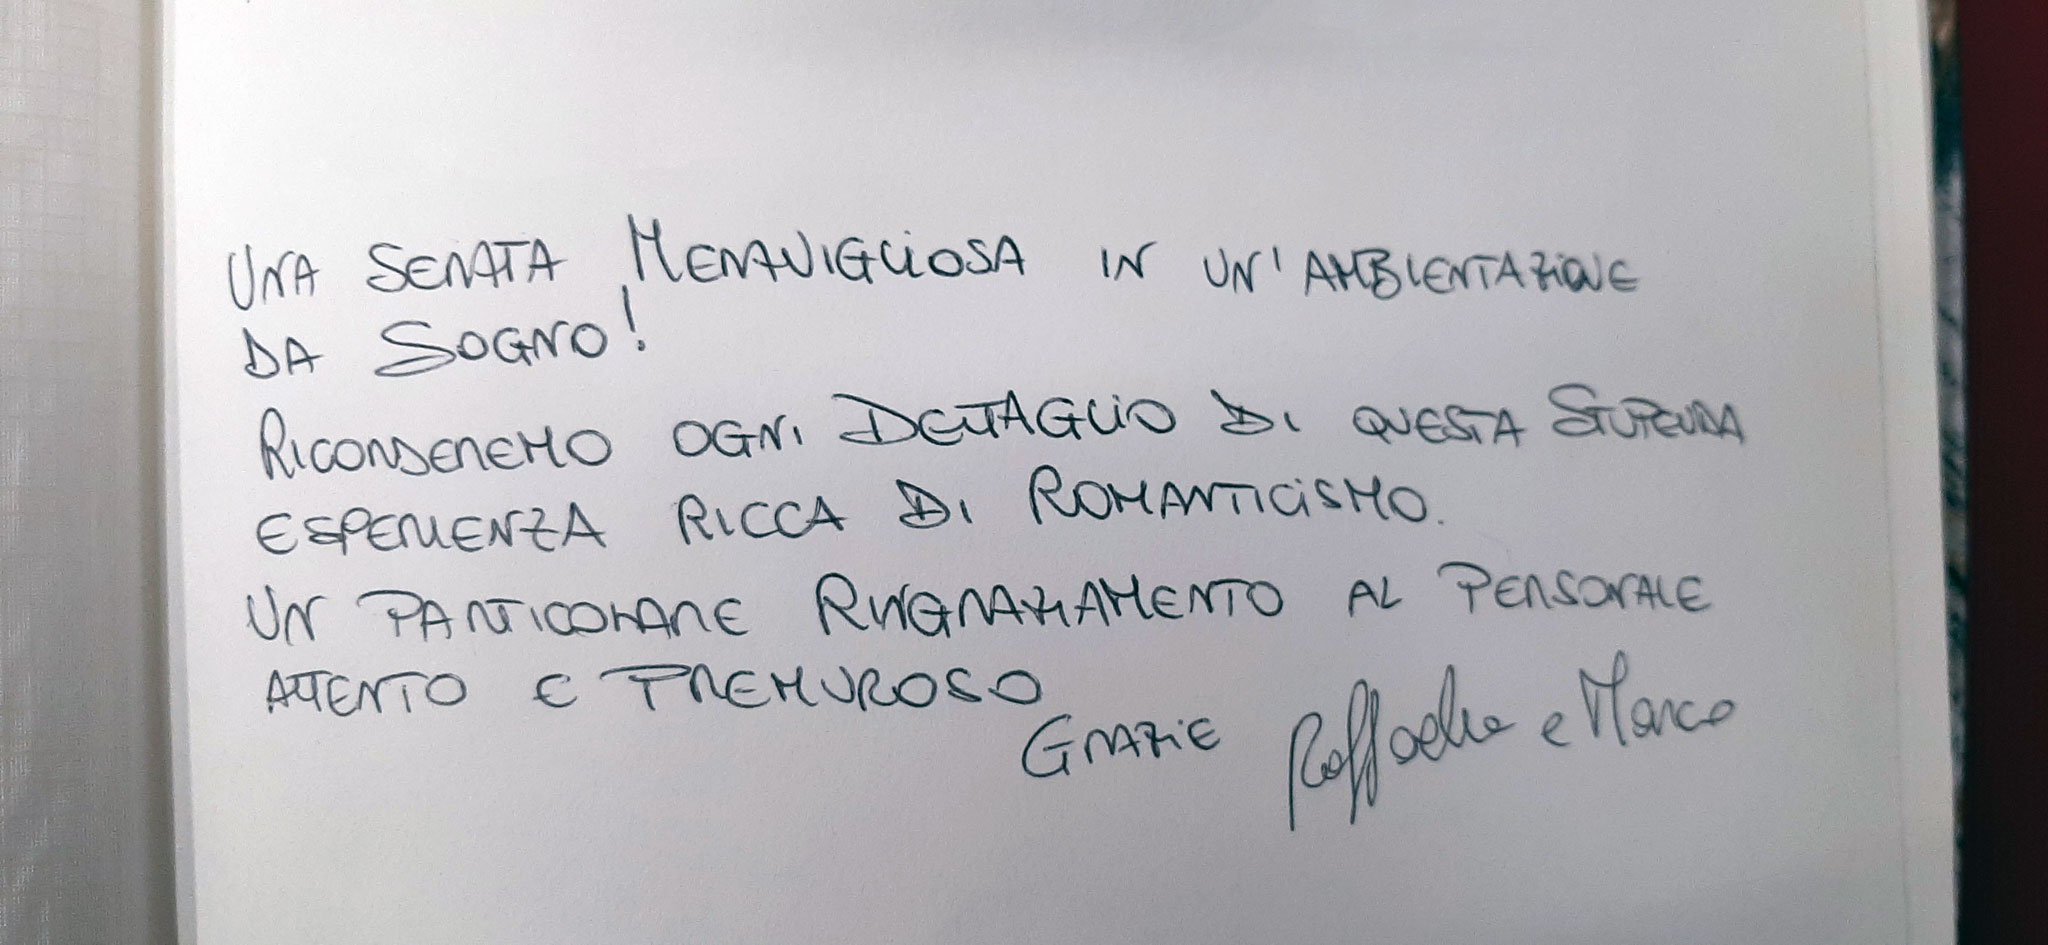 UNA SERATA MERAVIGLIOSA IN UN'AMBIENTAZIONE
DA SOGNO!
RICORDEREMO OGNI DETTAGLIO DI QUESTA STUPENDA
ESPERIENZA RICCA DI ROMANTICISMO.
UN PARTICOLARE RINGRAZIAMENTO AL PERSONALE
ATTENTO E TREMUROSO
GRAZIE Raffaella e Marco